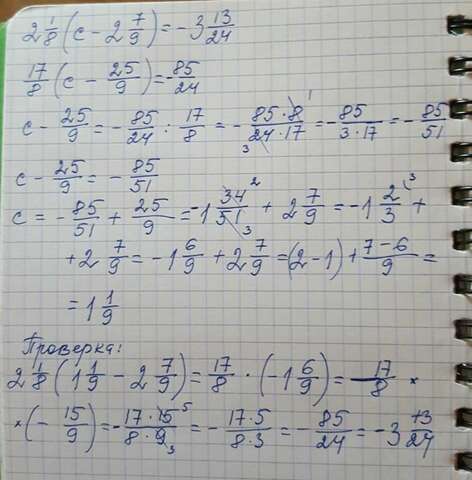 2 1/8 (c - 2 7/9) = -3 13/24
17/8 (c - 25/9) = -85/24
c - 25/9 = -85/24 : 17/8 = - 85·8/24·17 = -85/3·17 = -85/51
c - 25/9 = -85/51
c = -85/51 + 25/9 = -1 34/51 + 2 7/9 = -1 2/3 +
+ 2 7/9 = -1 6/9 + 2 7/9 = (2-1) + 7-6/9 =
= 1 1/9
Проверка:
2 1/8 (1 1/9 - 2 7/9) = 17/8 · (-1 6/9) = 17/8 ×
× (- 15/9) = - 17·15/8·9 = - 17·5/8·3 = - 85/24 = -3 13/24